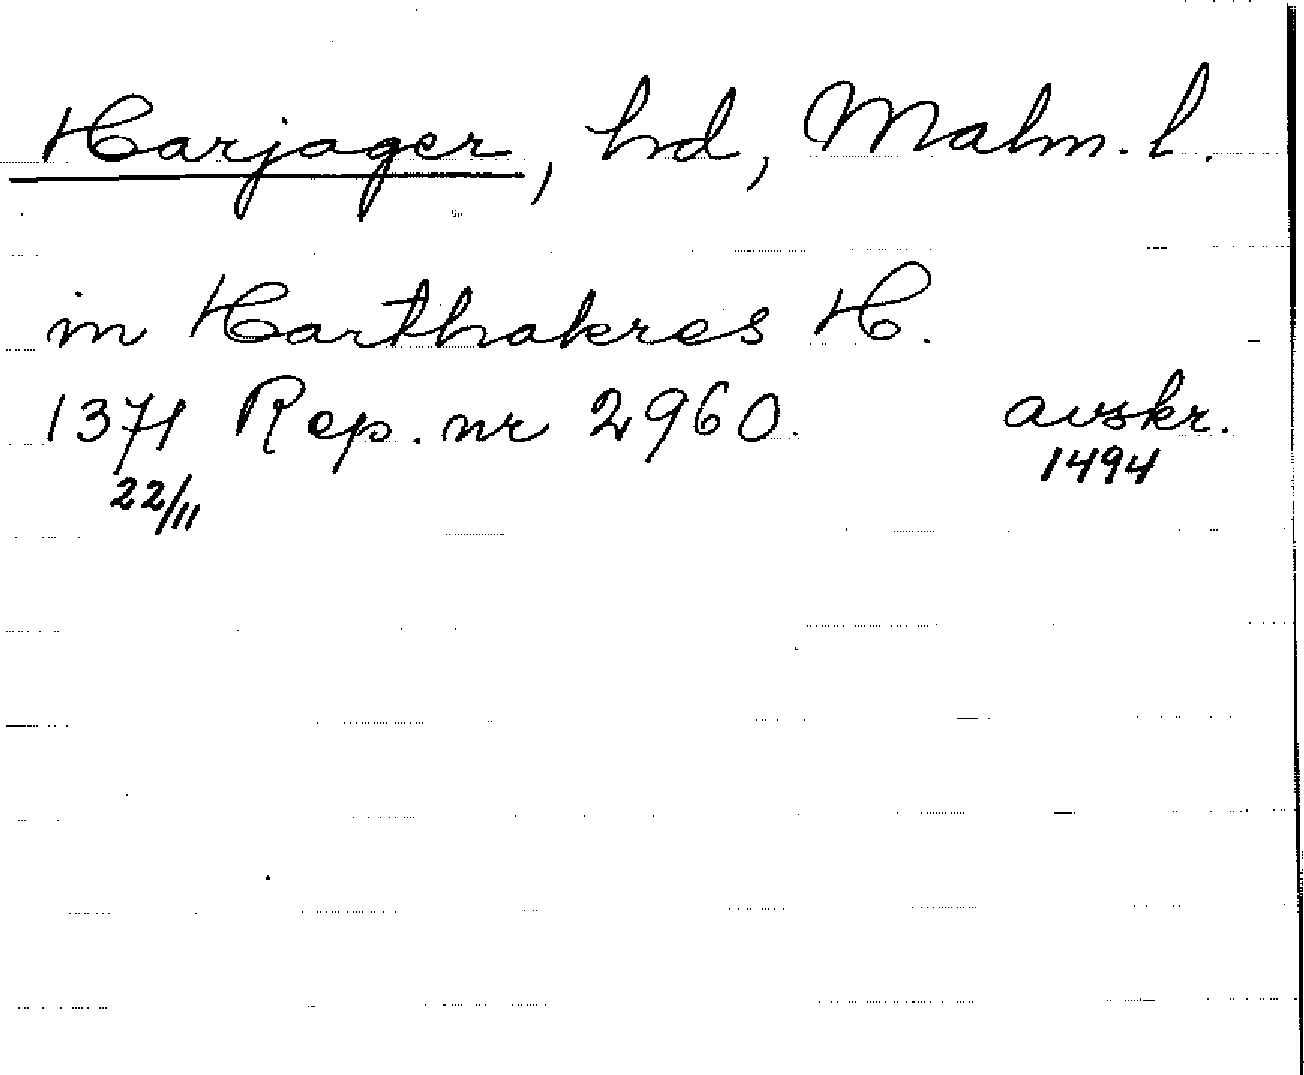 Harjager, hd, Malm. l.
in Harthakres H.
1371 Rep. nr 2960. avskr.
22/11 1494